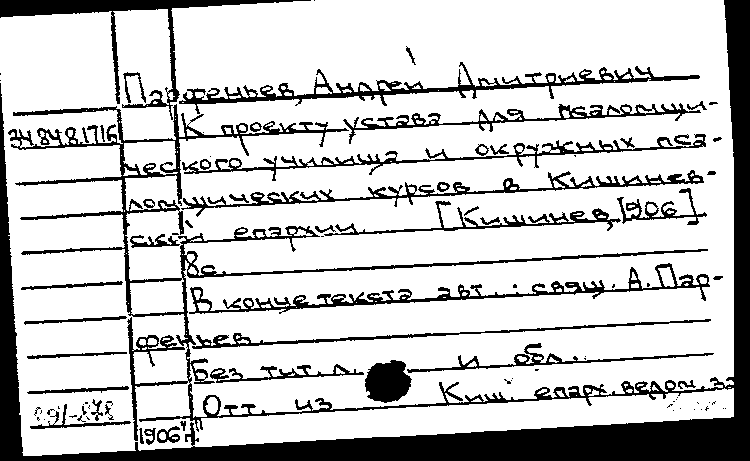 Парфеньев, Андрей Дмитриевич
34.84 8.17 16
К проекту устава для псаломщи-
ческого училища и окружных пса-
ломщических курсов в Кишинев-
ской епархии. [Кишинев, 1906].
8с.
В конце текста авт.: свящ. А. Пар-
феньев.
Без тит. л. и обл.
Отт. из Киш. епарх. ведом. за
891-878
1906 г.